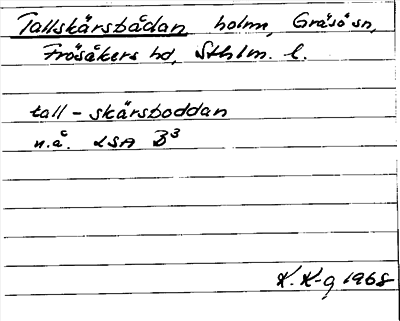 Tallskärsbådan holm, Gräsö sn,
Frösåkers hd, Sthlm. l.
tall-skärsboddan
n.å. LSA B3
K. K-g 1968